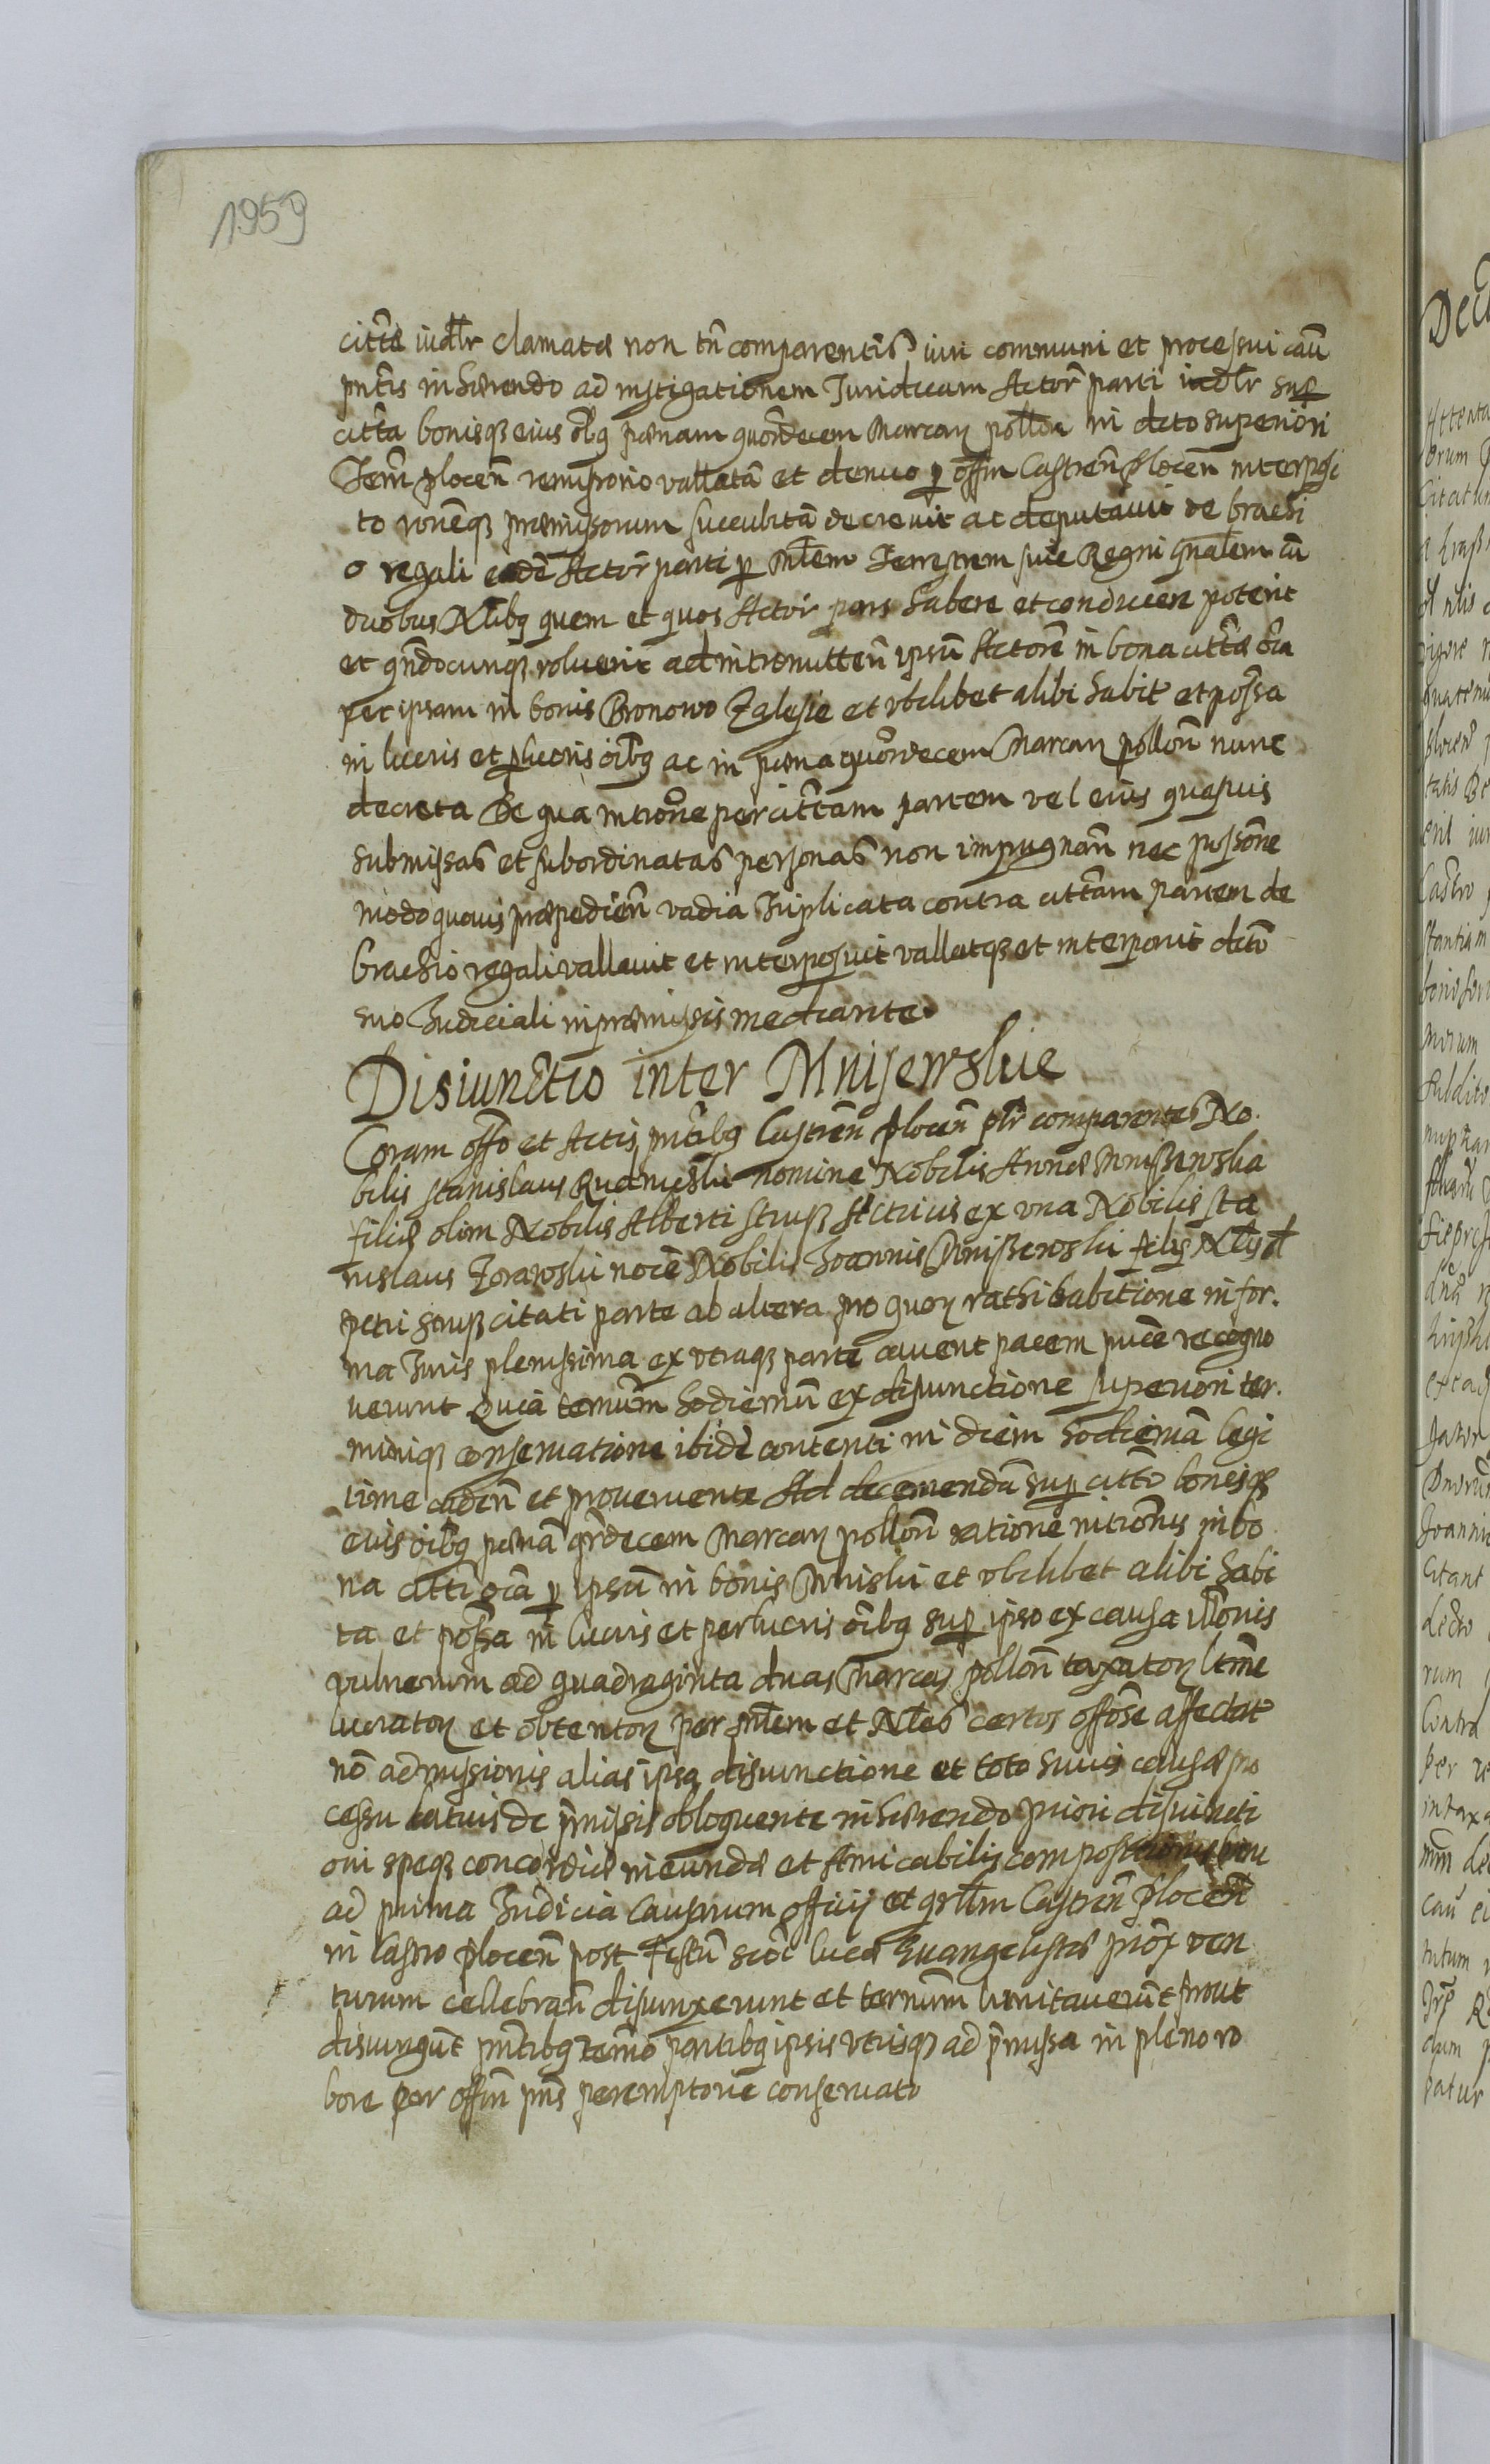 1959
cittæ iudlr clamatæ non tñ comparentis iuri communi et processui cau
pntis inhærendo ad instigationem Juridicam Actor parti iudlr sup
citta bonisq eius oibq pœnam quordecem Marcar pollon in dcto superiori
Terr plocen remissorio vallatã et denuo p offm Castren plocen interposi
to ronemq præmissorum succubitã decrevit ac deputavit de brachi
o regali eadẽ Actor parti p Mlem Terrestrem sive Regni gnalem cũ
duobus Nlibq quem et quos Actor pars habere et conducere poterit
et qñdocunq voluerit ad intromitten ipsum Actorẽ in bona cittæ oia
per ipsam in bonis Bronowo Zalesie et vbilibet alibi habit et possa
in lucris et plucris oibq ac in pœna quordecem Marcar pollon nunc
decreta De qua introne per cittam partem vel eius quasvis
submissas et subordinatas personas non impugnan nec possone
modo quovis præpedien vadia triplicata contra cittam partem de
brachio regali vallavit et interposuit vallatq et interponit dcto
suo Judiciali in præmissis mediante
Disiunctio inter Mnisewskie
Coram offo et Actis pntibq Castren plocen plr comparentes No
bilis Stanislaus nomine Nobilis Annæ Mnissewska
filiæ olim Nobilis Alberti Strus Actricis ex una Nobilis Sta
nislaus Zorawski noie Nobilis Joannis Mnissewski filij Nlis ol
petri Strus citati parte ab altera pro quor rathihabitione in for
ma Juris plenissima ex vtraq parte cavent pacem pucẽ recogno
uerunt Quia termum hodiernũ ex disiunctione superiori ter
miniq conservatione ibidẽ contenti in diem hodiernã legi
time caden et provenientem Ad decernendã sup citto bonisq
eius oibq pœnã qrdecem Marcar pollon ratione intronis in bo
na citti oia p ipsũ in bonis Mniski et vbilibet alibi habi
ta et possa in lucris et perlucris oibq sup ipso ex causa illonis
vulnerum ad quadraginta duas Marcas pollon taxator ltme
lucrator et obtentor per Mlem et Nles certos offose affectat
nõ admissionis alias ipsa disiunctione et toto huius causæ pro
cessu latius de prmissis obloquente inhærendo priori disiuncti
oni speq concordiæ ineundæ et Amicabilis compositionis
ad prima Judicia causarum officij et qrlm Castren plocen
in Castro plocen post Festũ scti lucæ Evangelistæ prox ven
turum cellebran disiunxerunt et termum limitaverunt prout
disiungunt pntibq termo partibq ipsis vtrisq ad prmissa in pleno ro
bore per offm pns peremptorie conservato